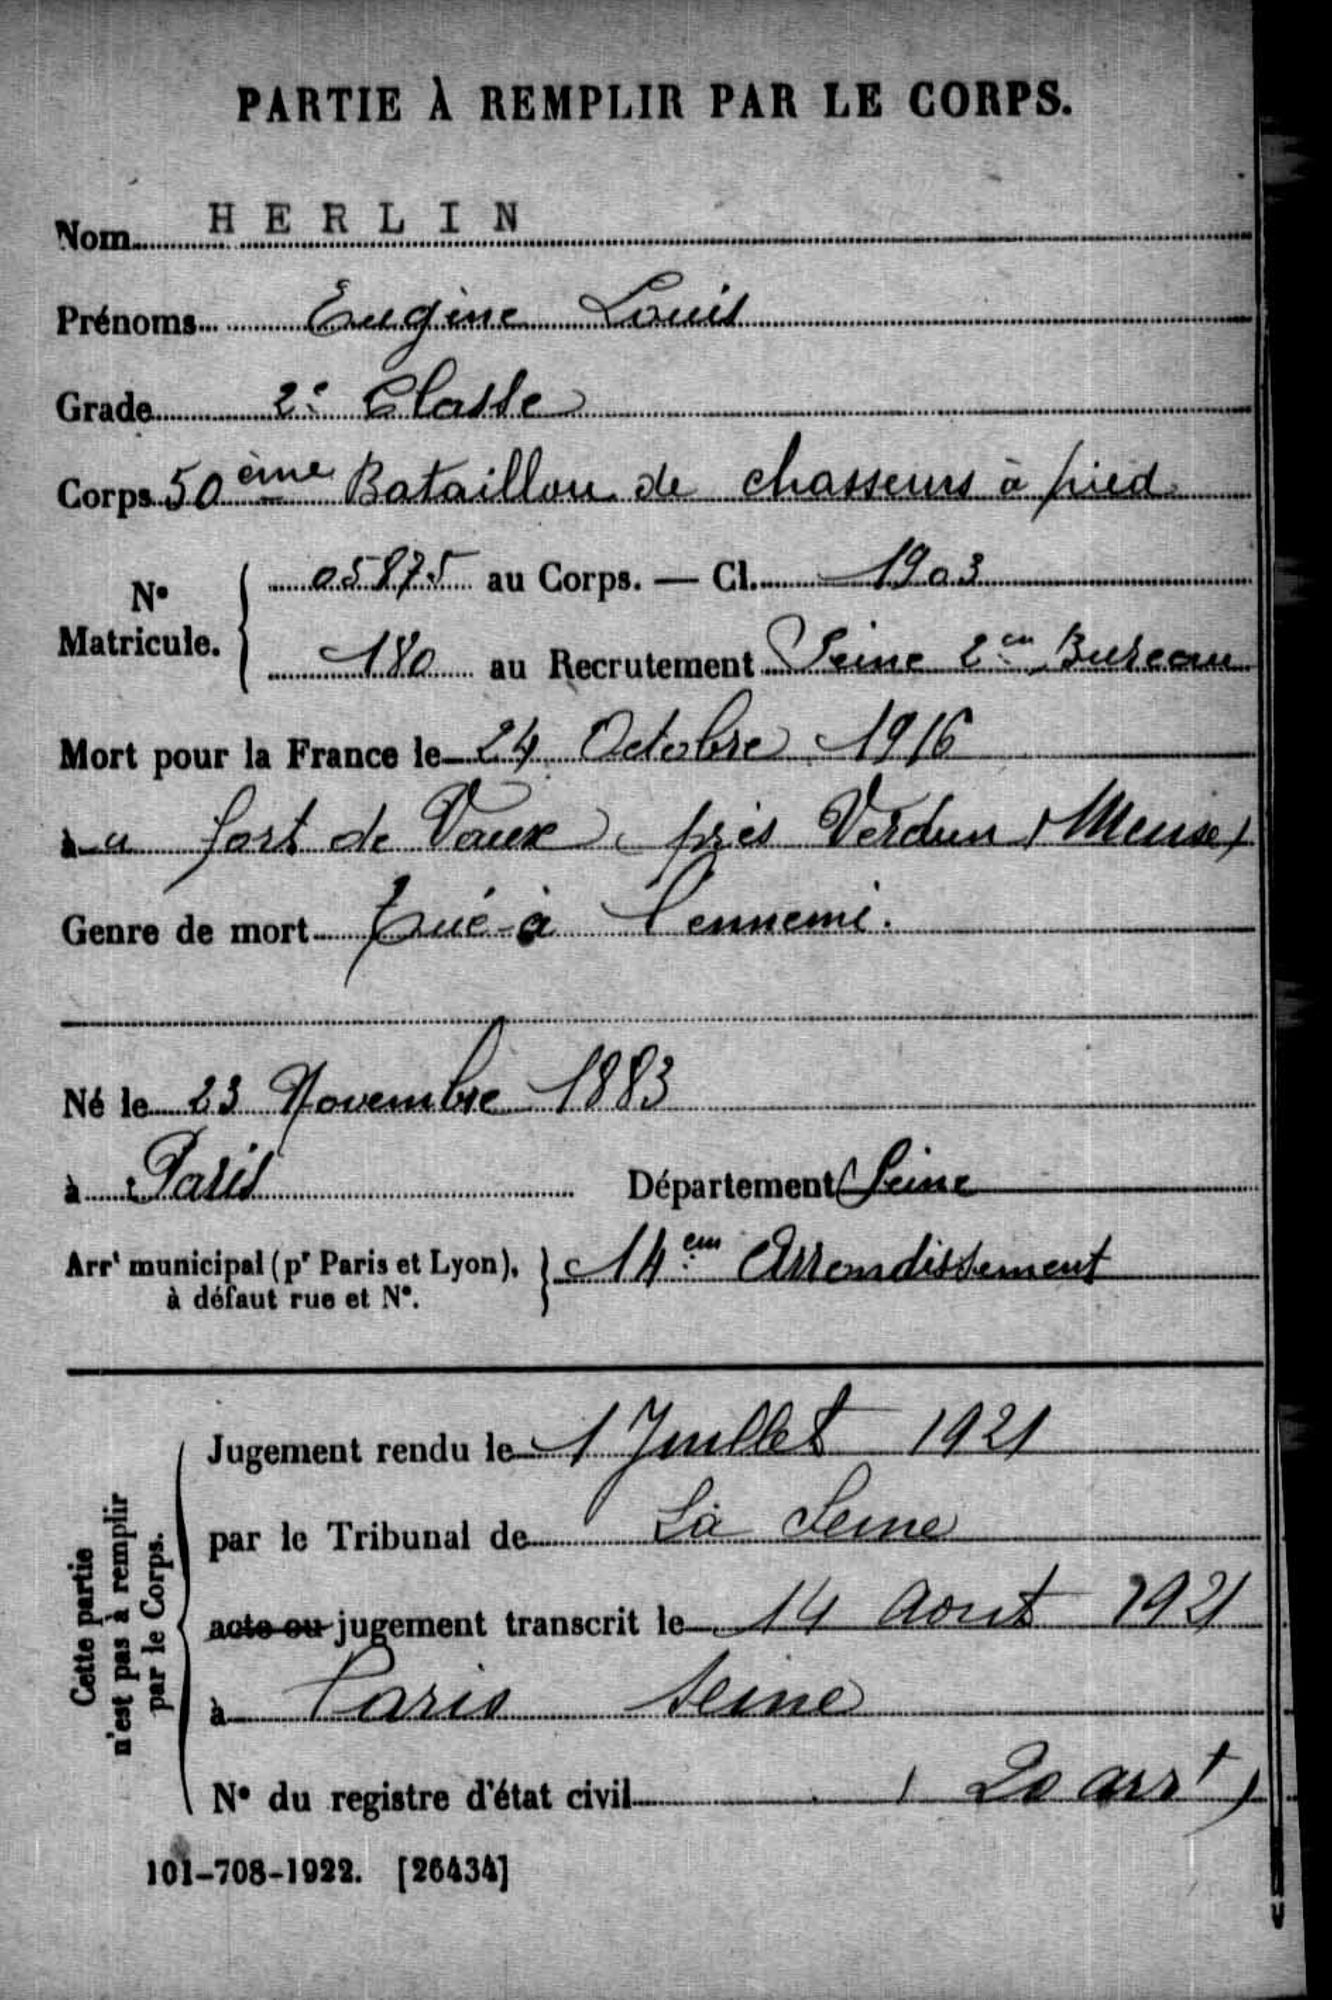 PARTIE À REMPLIR PAR LE CORPS.
Nom HERLIN
Prénoms Eugène Louis
Grade 2e Classe
Corps 50ème Bataillon de chasseurs à pied
No Matricule. 05875 au Corps. — Cl. 1903
180 au Recrutement Seine 2em Bureau
Mort pour la France le 24 Octobre 1916
au fort de Vaux près Verdun (Meuse)
Genre de mort Tué à l'ennemi.
Né le 23 Novembre 1883
à Paris Département Seine
Arrt municipal (pr Paris et Lyon), à défaut rue et No. 14em Arrondissement
Cette partie n'est pas à remplir par le Corps.
Jugement rendu le 1 Juillet 1921
par le Tribunal de La Seine
acte ou jugement transcrit le 14 Aout 1921
à Paris Seine
No du registre d'état civil (20 arrt)
101-708-1922. [26434]